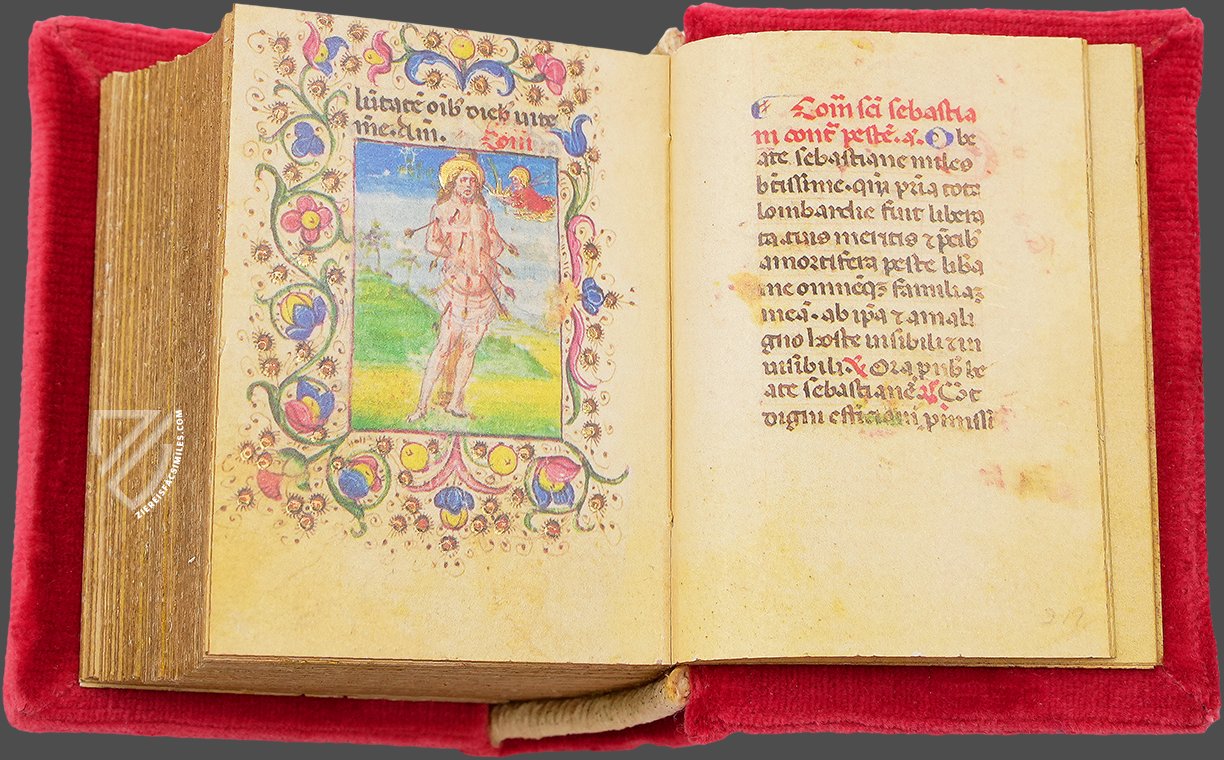 lūtatē oīb dieb uite
mee. am̄. Com̄
Com̄ sc̄i sebastia
ni contͣ pestē. a. O be
ate sebastiane miles
btissime. qui pr̄ia tota
lombardie fuit libera
ta. tuis meritis ⁊ p̄cib
a mortifera peste liba
me omnēqꝫ familiaꝫ
meā. ab ip̄a ⁊ a mali
gno hoste uisibili ⁊ in
uisibili. ℣ Ora p nob̄ be
ate sebastiane. ℟ Vt
digni efficiam̄ p̄missi
ZIEREISFACSIMILES.COM